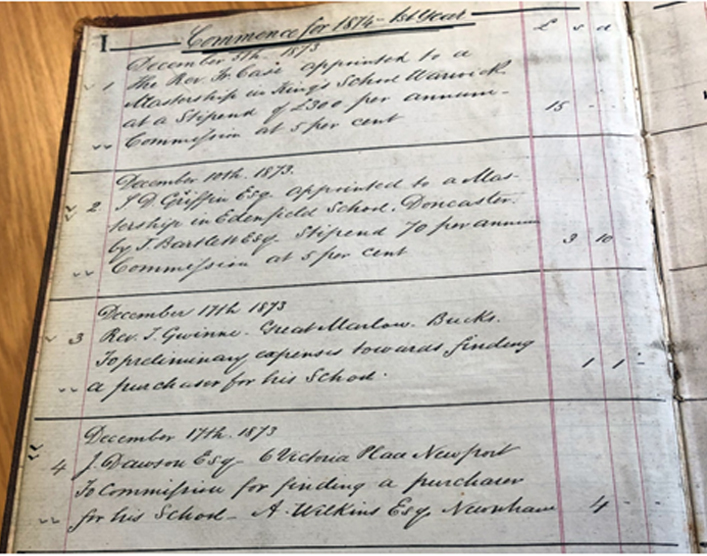 I Commence for 1874 – 1st Year £ s d
December 5th. 1873
1 The Rev. Fr. Case appointed to a
Mastership in King's School Warwick
at a Stipend of £300 per annum –
Commission at 5 per cent 15 - -
December 10th. 1873.
2 J. D. Griffin Esq. appointed to a Mas-
tership in Edenfield School. Doncaster.
by J. Bartlett Esq. Stipend 70 per annum
Commission at 5 per cent 3 10 -
December 17th 1873
3 Rev. J. Gwinne. Great Marlow. Bucks.
To preliminary expenses towards finding
a purchaser for his School. 1 1 -
December 17th. 1873
4 J. Dawson Esq – 6 Victoria Place Newport
To Commission for finding a purchaser
for his School – A. Wilkins Esq. Newnham 4 - -